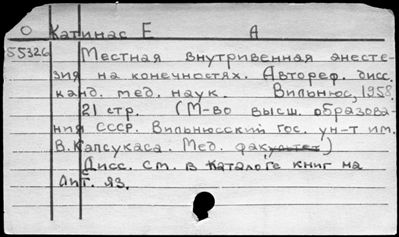 О Катинас Е А
55326 Местная внутривенная анесте-
зия на конечностях. Автореф. дисс.
канд. мед. наук. Вильнюс, 1958.
21 стр. (М-во высш. образова
ния СССР. Вильнюсский гос. ун-т им.
В. Капсукаса. Мед. факультет)
Дисс. см. в каталоге книг на
лит. яз.